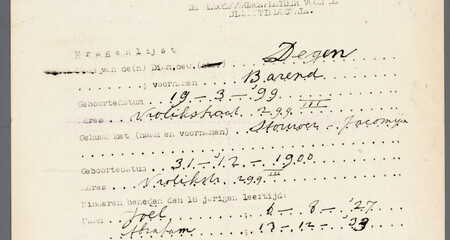 DE
V r a g e n l i j s t
van de(n) Dienbev. Degen
; voornamen Barend
Geboortedatum 19 - 3 - '99
Adres Vrolikstraat 299 III
Gehuwd met (naam en voornamen)
Geboortedatum 31 - 12 - 1900
Adres Vrolikstr. 299 III
Kinderen beneden den 16 jarigen leeftijd:
Naam Joel 6 - 8 - '27
Abraham 13 - 12 - '33